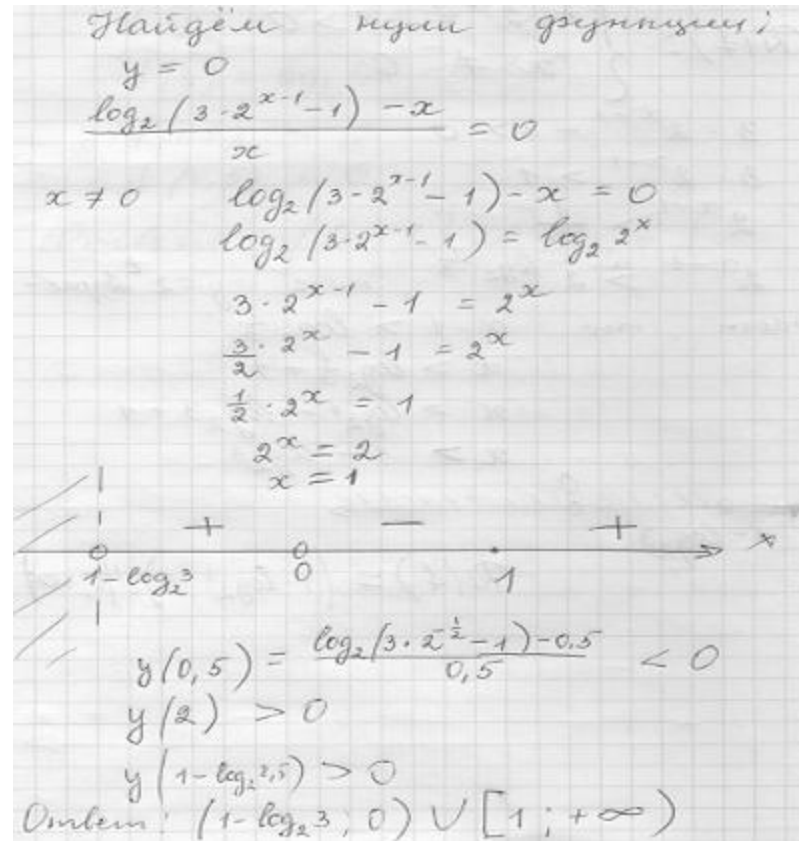 Найдём нули функции;
y = 0
log₂(3·2^(x-1) - 1) - x / x = 0
x ≠ 0 log₂(3·2^(x-1) - 1) - x = 0
log₂(3·2^(x-1) - 1) = log₂ 2^x
3·2^(x-1) - 1 = 2^x
3/2 · 2^x - 1 = 2^x
1/2 · 2^x = 1
2^x = 2
x = 1
+ − + x
1-log₂3 0 1
y(0,5) = log₂(3·2^(-1/2) - 1) - 0,5 / 0,5 < 0
y(2) > 0
y(1-log₂2,5) > 0
Ответ: (1-log₂3; 0) ∪ [1; +∞)